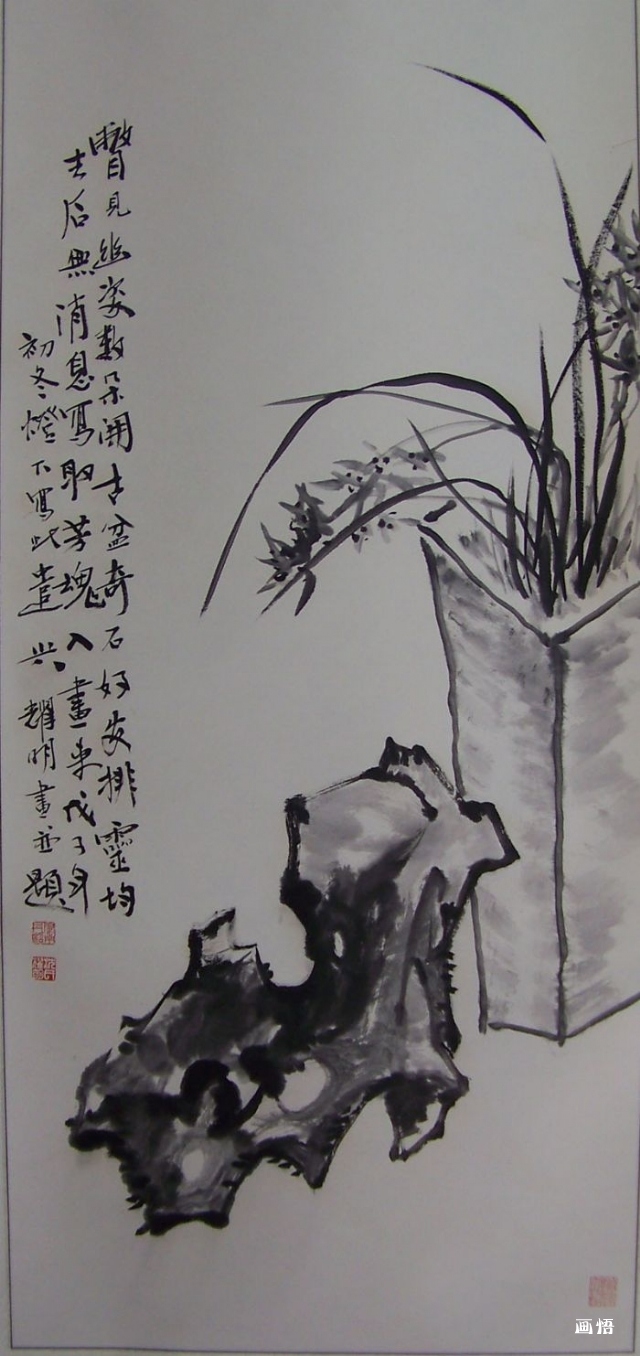 瞥見幽姿數朵開古盆奇石好安排靈均
去后無消息寫取芳魂入畫來戊子年
初冬燈下寫此遣興耀明畫並題
画悟